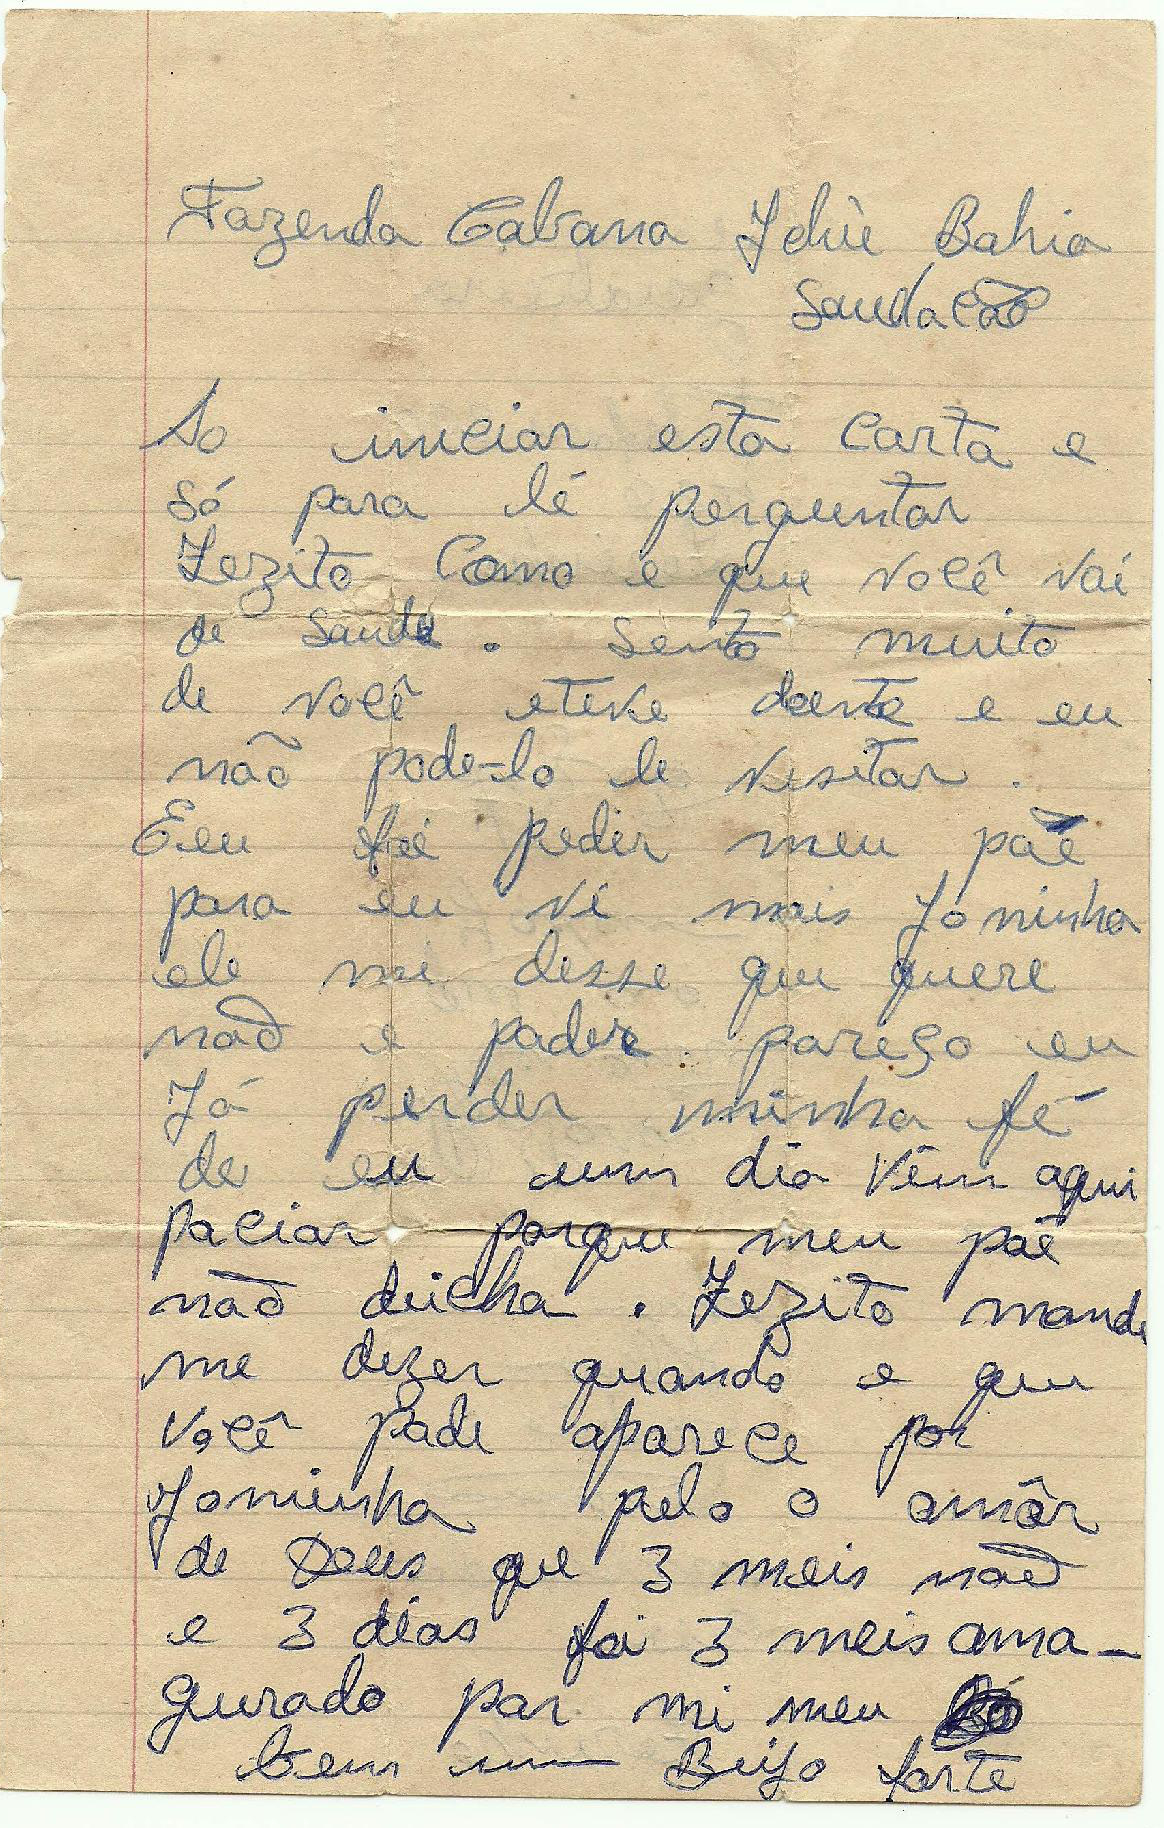 Fazenda Cabana Ichùe Bahia
Saudacão
Ao iniciar esta carta e
só para lé perguntar
Zezito Como e que você vai
de saude. Sento muito
de você eteve doente e eu
não pode-lo le vesitar.
Eeu foi pedir meu pãe
para eu vê mais Joninha
ele mi desse que quere
não e pader. pareço eu
Já perder minha fé
de eu um dia vêm aqui
paciar porque meu pãe
não deicha. Zezito mande
me dezer quando e que
você pade aparece por
Joninha pelo o amôr
de Deus que 3 meis não
e 3 dias foi 3 meis ama-
gurado par mi meu
bem um Beijo forte